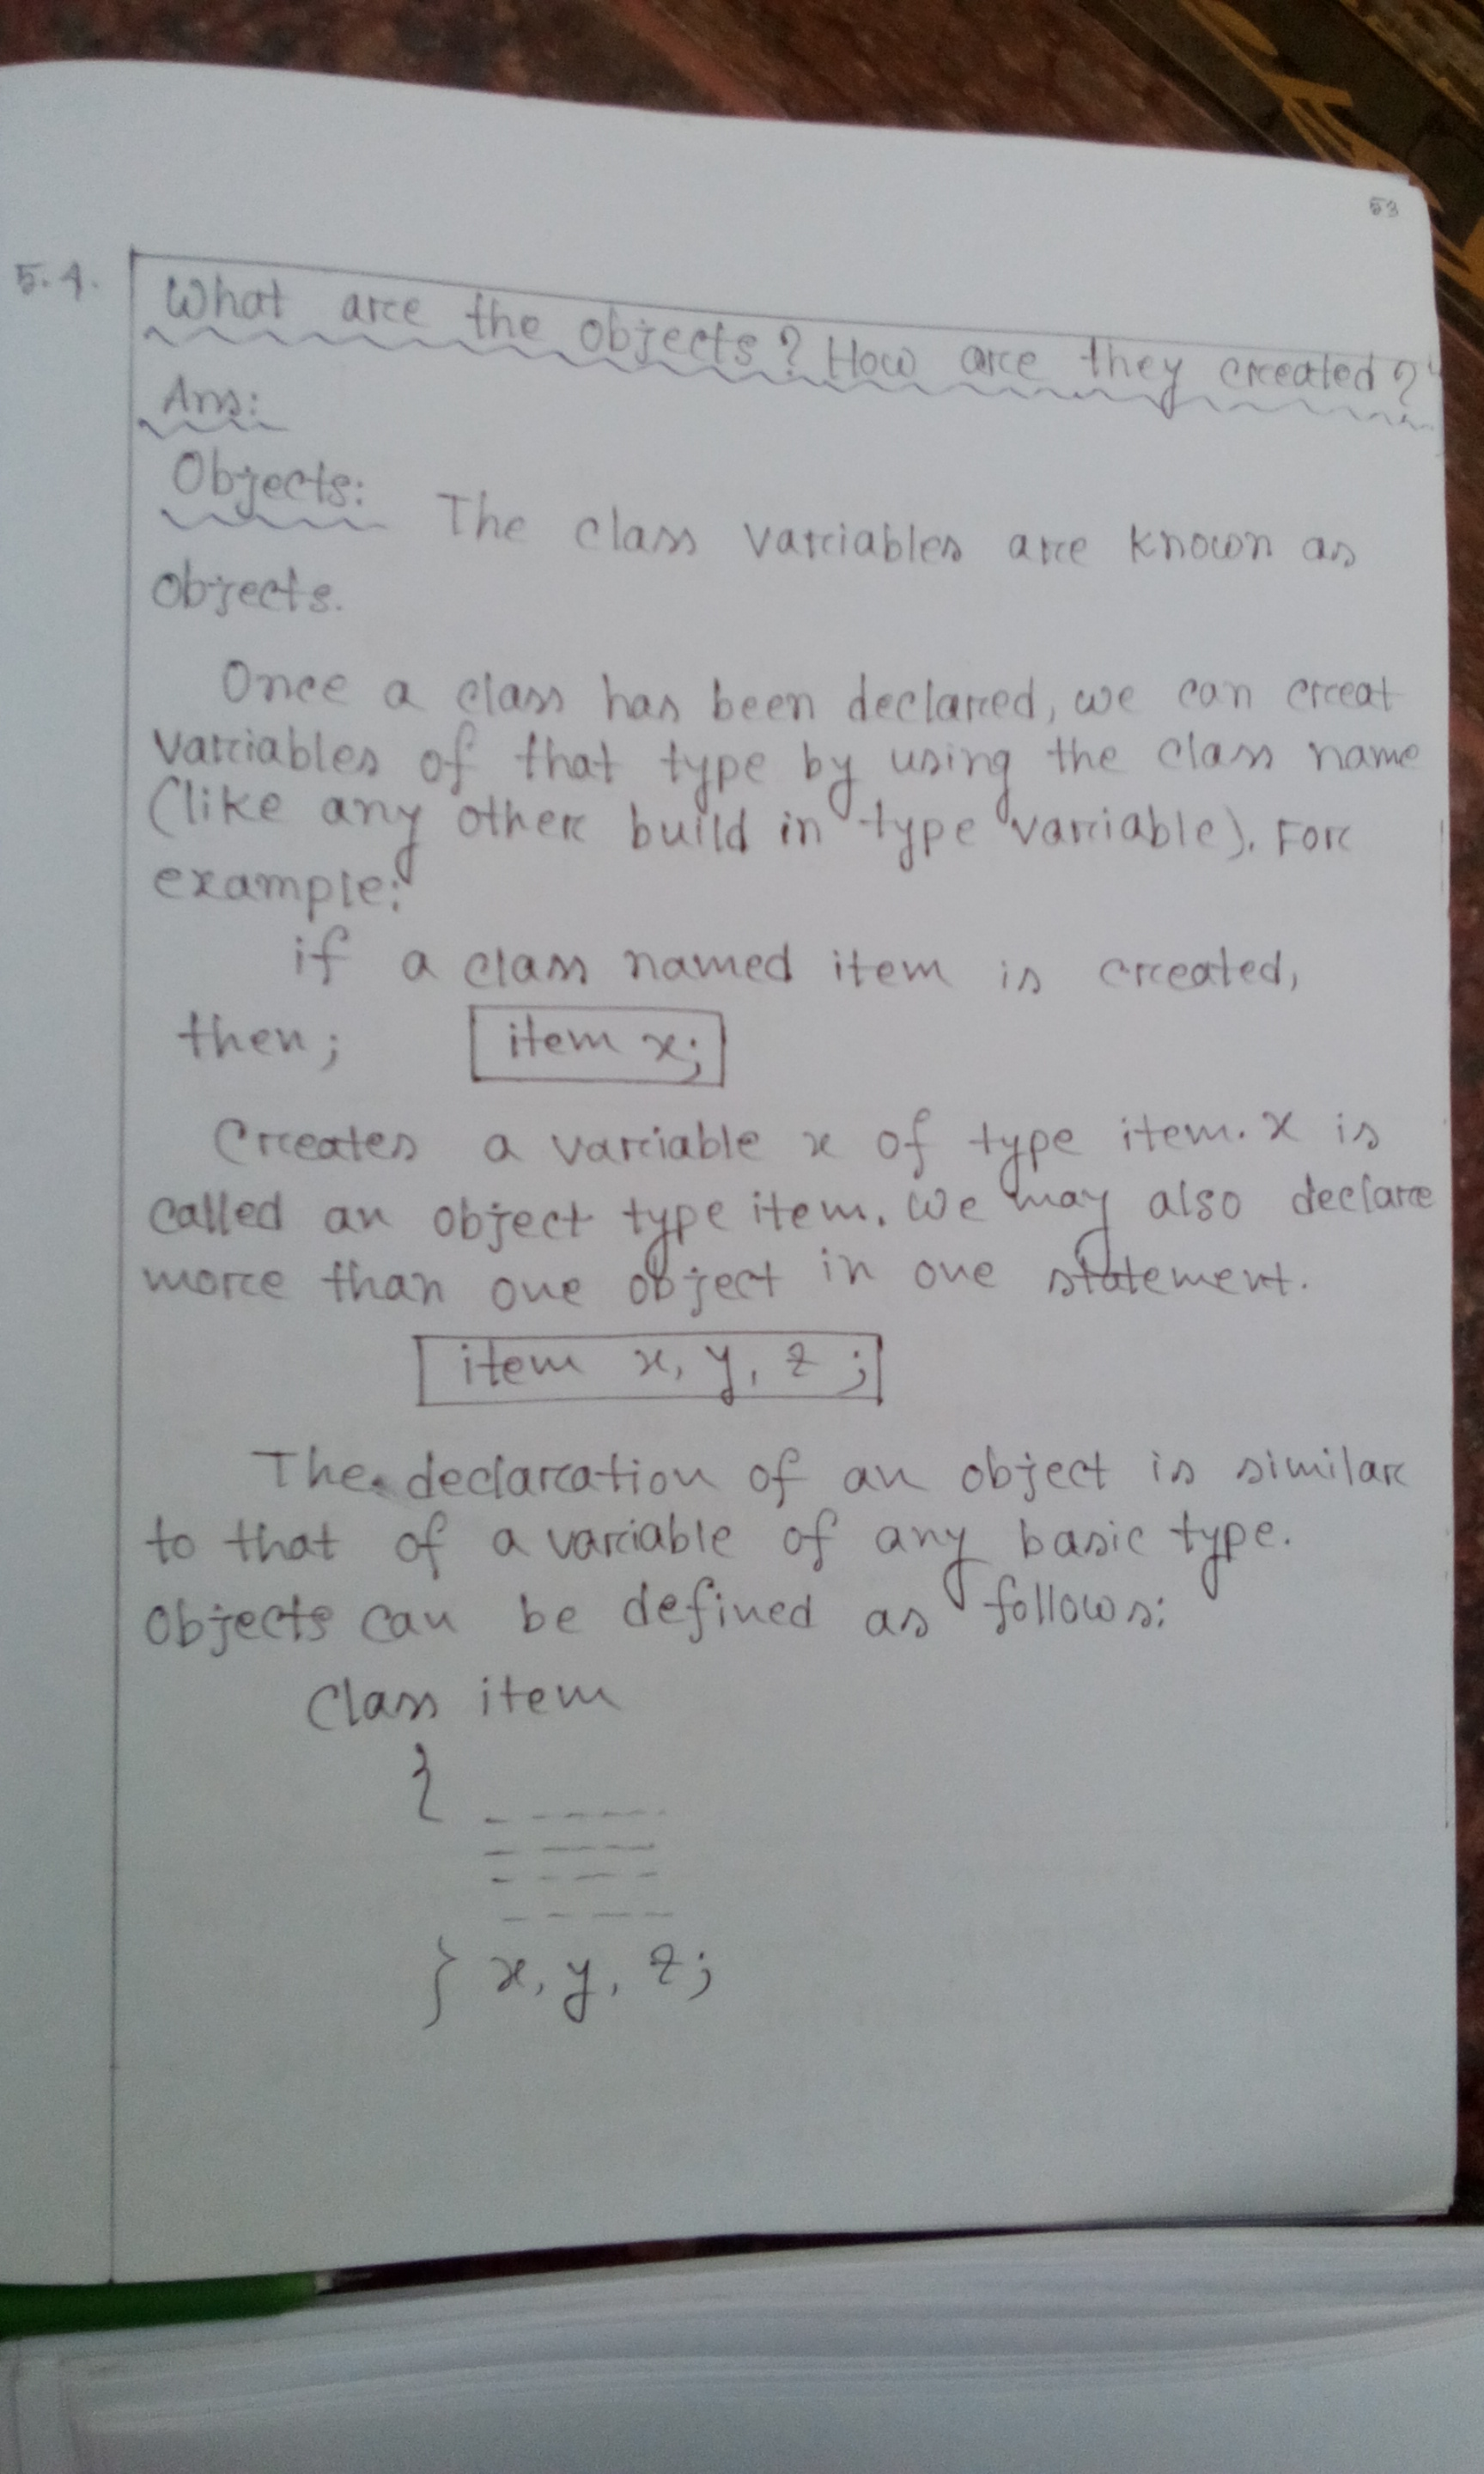 53
5.4.
What are the objects? How are they created?
Ans:
Objects: The class variables are known as
objects.
Once a class has been declared, we can creat
variables of that type by using the class name
(like any other build in type variable). For
example:
if a class named item is created,
then; item x;
Creates a variable x of type item. x is
called an object type item. We may also declare
more than one object in one statement.
item x, y, z ;
The declaration of an object is similar
to that of a variable of any basic type.
Objects can be defined as follows:
Class item
{ - - - - -
- - - -
- - - -
- - - -
} x, y, z;